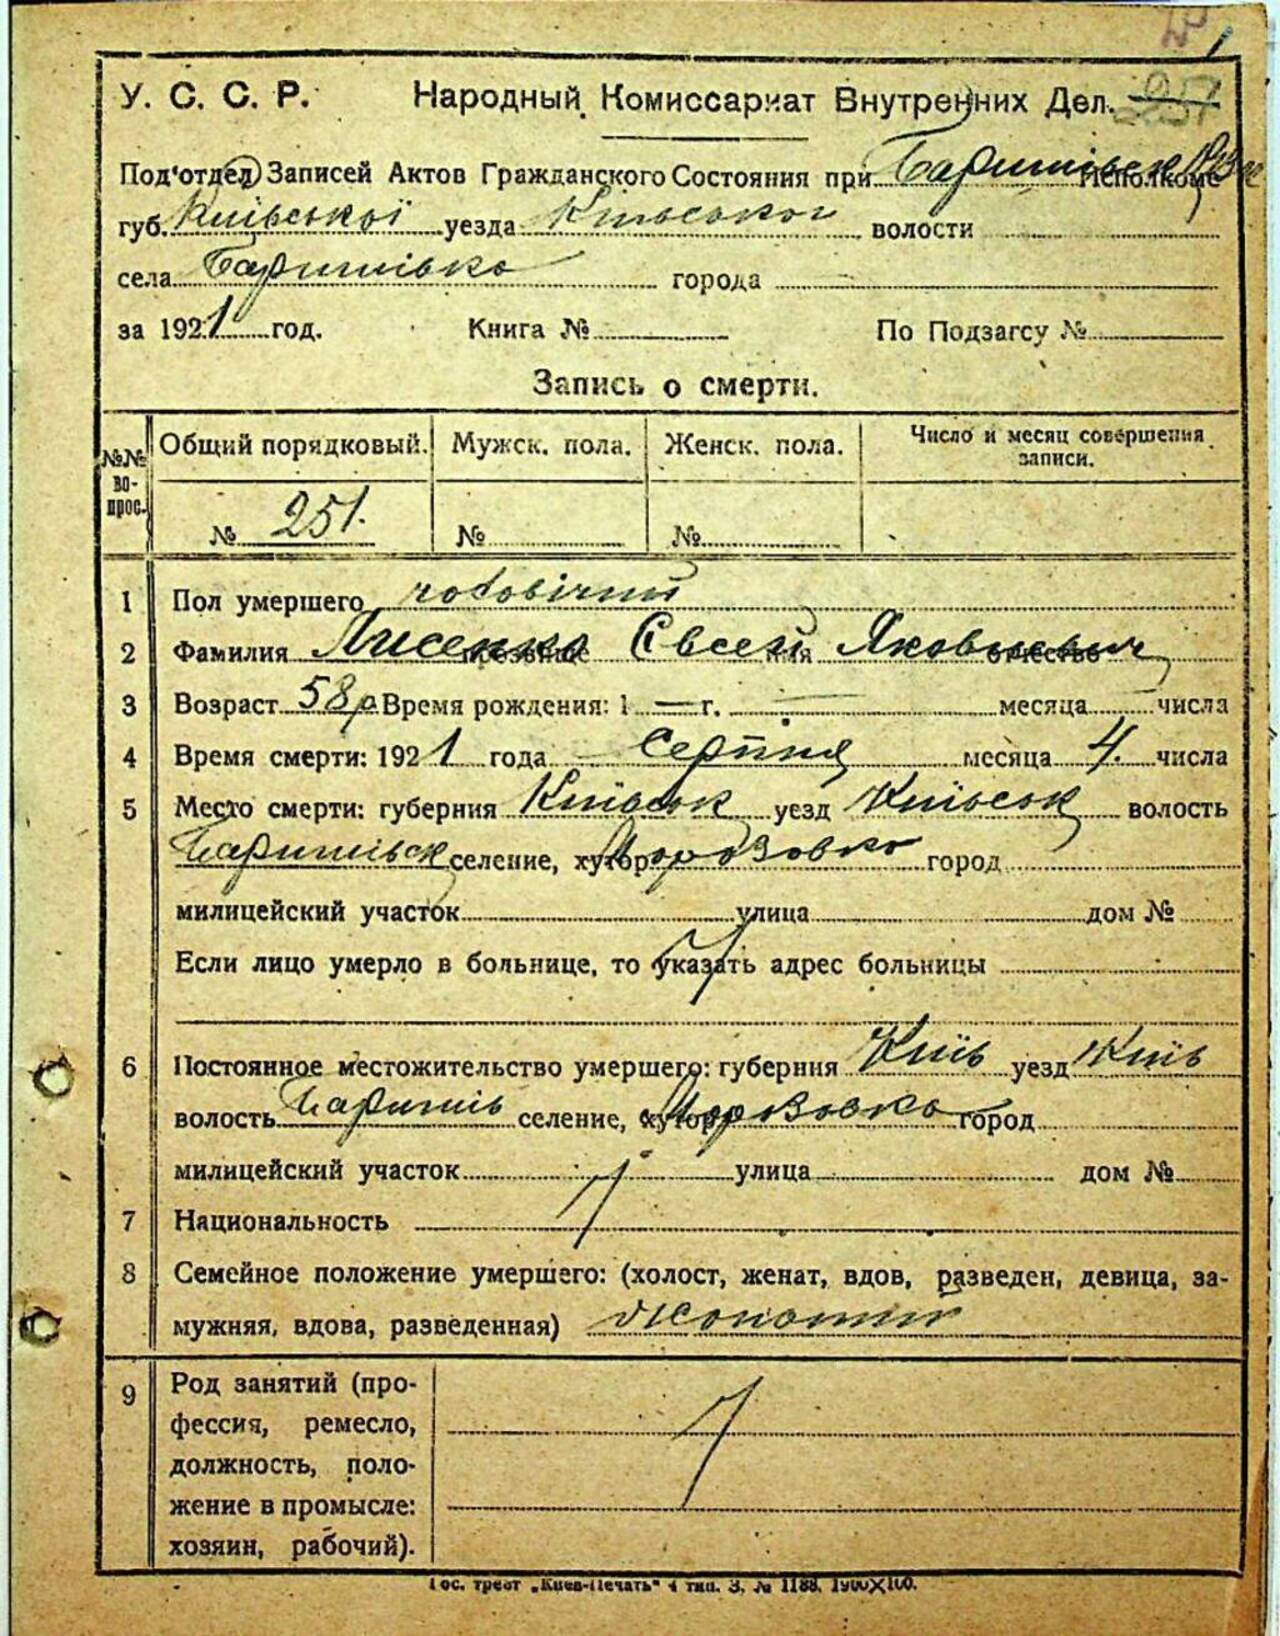 1
У. С. С. Р. Народный Комиссариат Внутренних Дел. 257
Под'отдел Записей Актов Гражданского Состояния при Баришівськ Исполкоме
губ. Київської уезда Київського волости
села Баришівка города
за 1921 год. Книга № По Подзагсу №
Запись о смерти.
№№ вопрос. Общий порядковый. Мужск. пола. Женск. пола. Число и месяц совершения записи.
№ 251. № №
1 Пол умершего чоловічий
2 Фамилия Лисенко Євсей Яковлевич
3 Возраст 58 р Время рождения: 1 — г. — месяца числа
4 Время смерти: 1921 года Серпня месяца 4. числа
5 Место смерти: губерния Київськ уезд Київськ волость
Баришівськ селение, хутор Морозовка город
милицейский участок улица дом №
Если лицо умерло в больнице, то указать адрес больницы
6 Постоянное местожительство умершего: губерния Київ уезд Київ
волость Баришів селение, хутор Морозовка город
милицейский участок улица дом №
7 Национальность
8 Семейное положение умершего: (холост, женат, вдов, разведен, девица, за-
мужняя, вдова, разведенная) жонатий
9 Род занятий (про-
фессия, ремесло,
должность, поло-
жение в промысле:
хозяин, рабочий).
Гос. трест „Киев-Печать" 4 тип. З. № 1188. 1900×100.